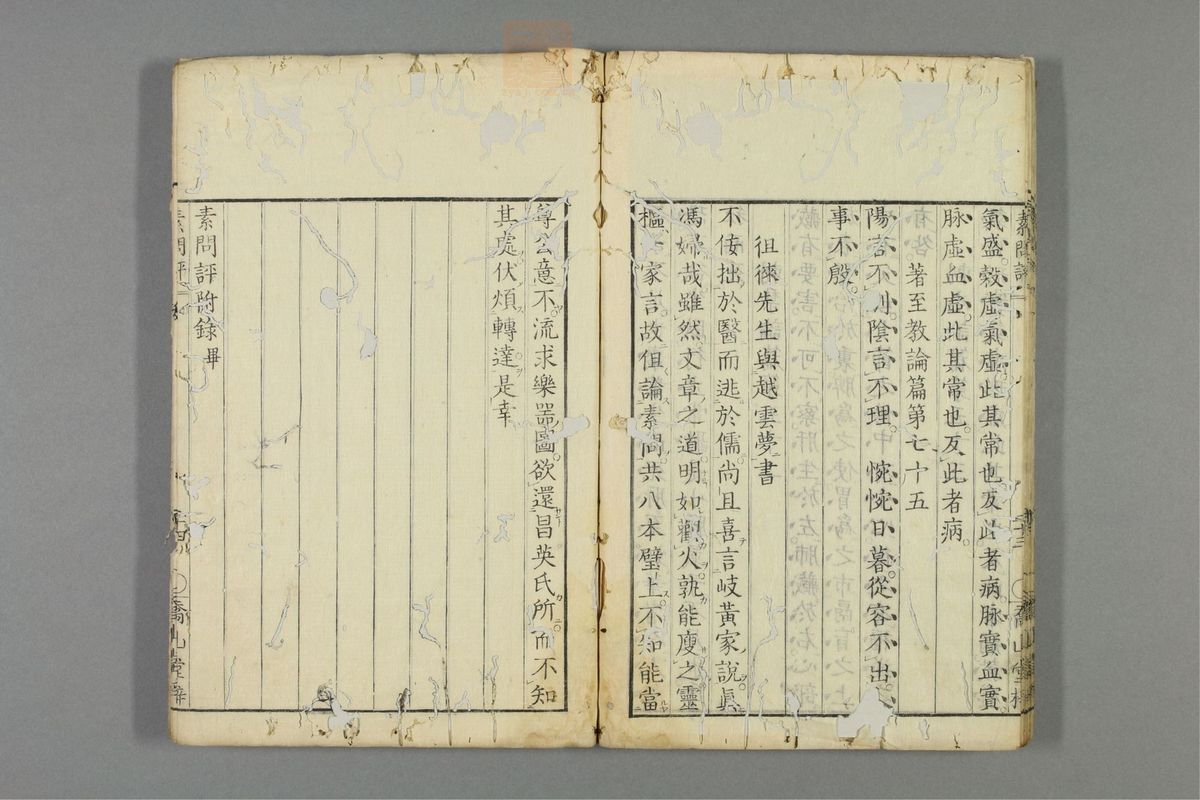 素問評
氣盛。穀虛氣虛此其常也反此者病。脉實血實
脉虛血虛此其常也。反此者病。
著至教論篇第七十五
陽言不別陰言不理。惋惋日暮。從容不出。人
事不殷。
徂徠先生與越雲夢書
不佞拙於醫而逃於儒尚且喜言岐黃家說。眞
馮婦哉雖然文章之道明如觀火孰能廋之靈
樞 家言。故但論素問。共八本璧上。不知能當
尊公意不。流求樂噐圖。欲還昌英氏所。而不知
其處伏煩轉達是幸
素問評附錄畢
素問評